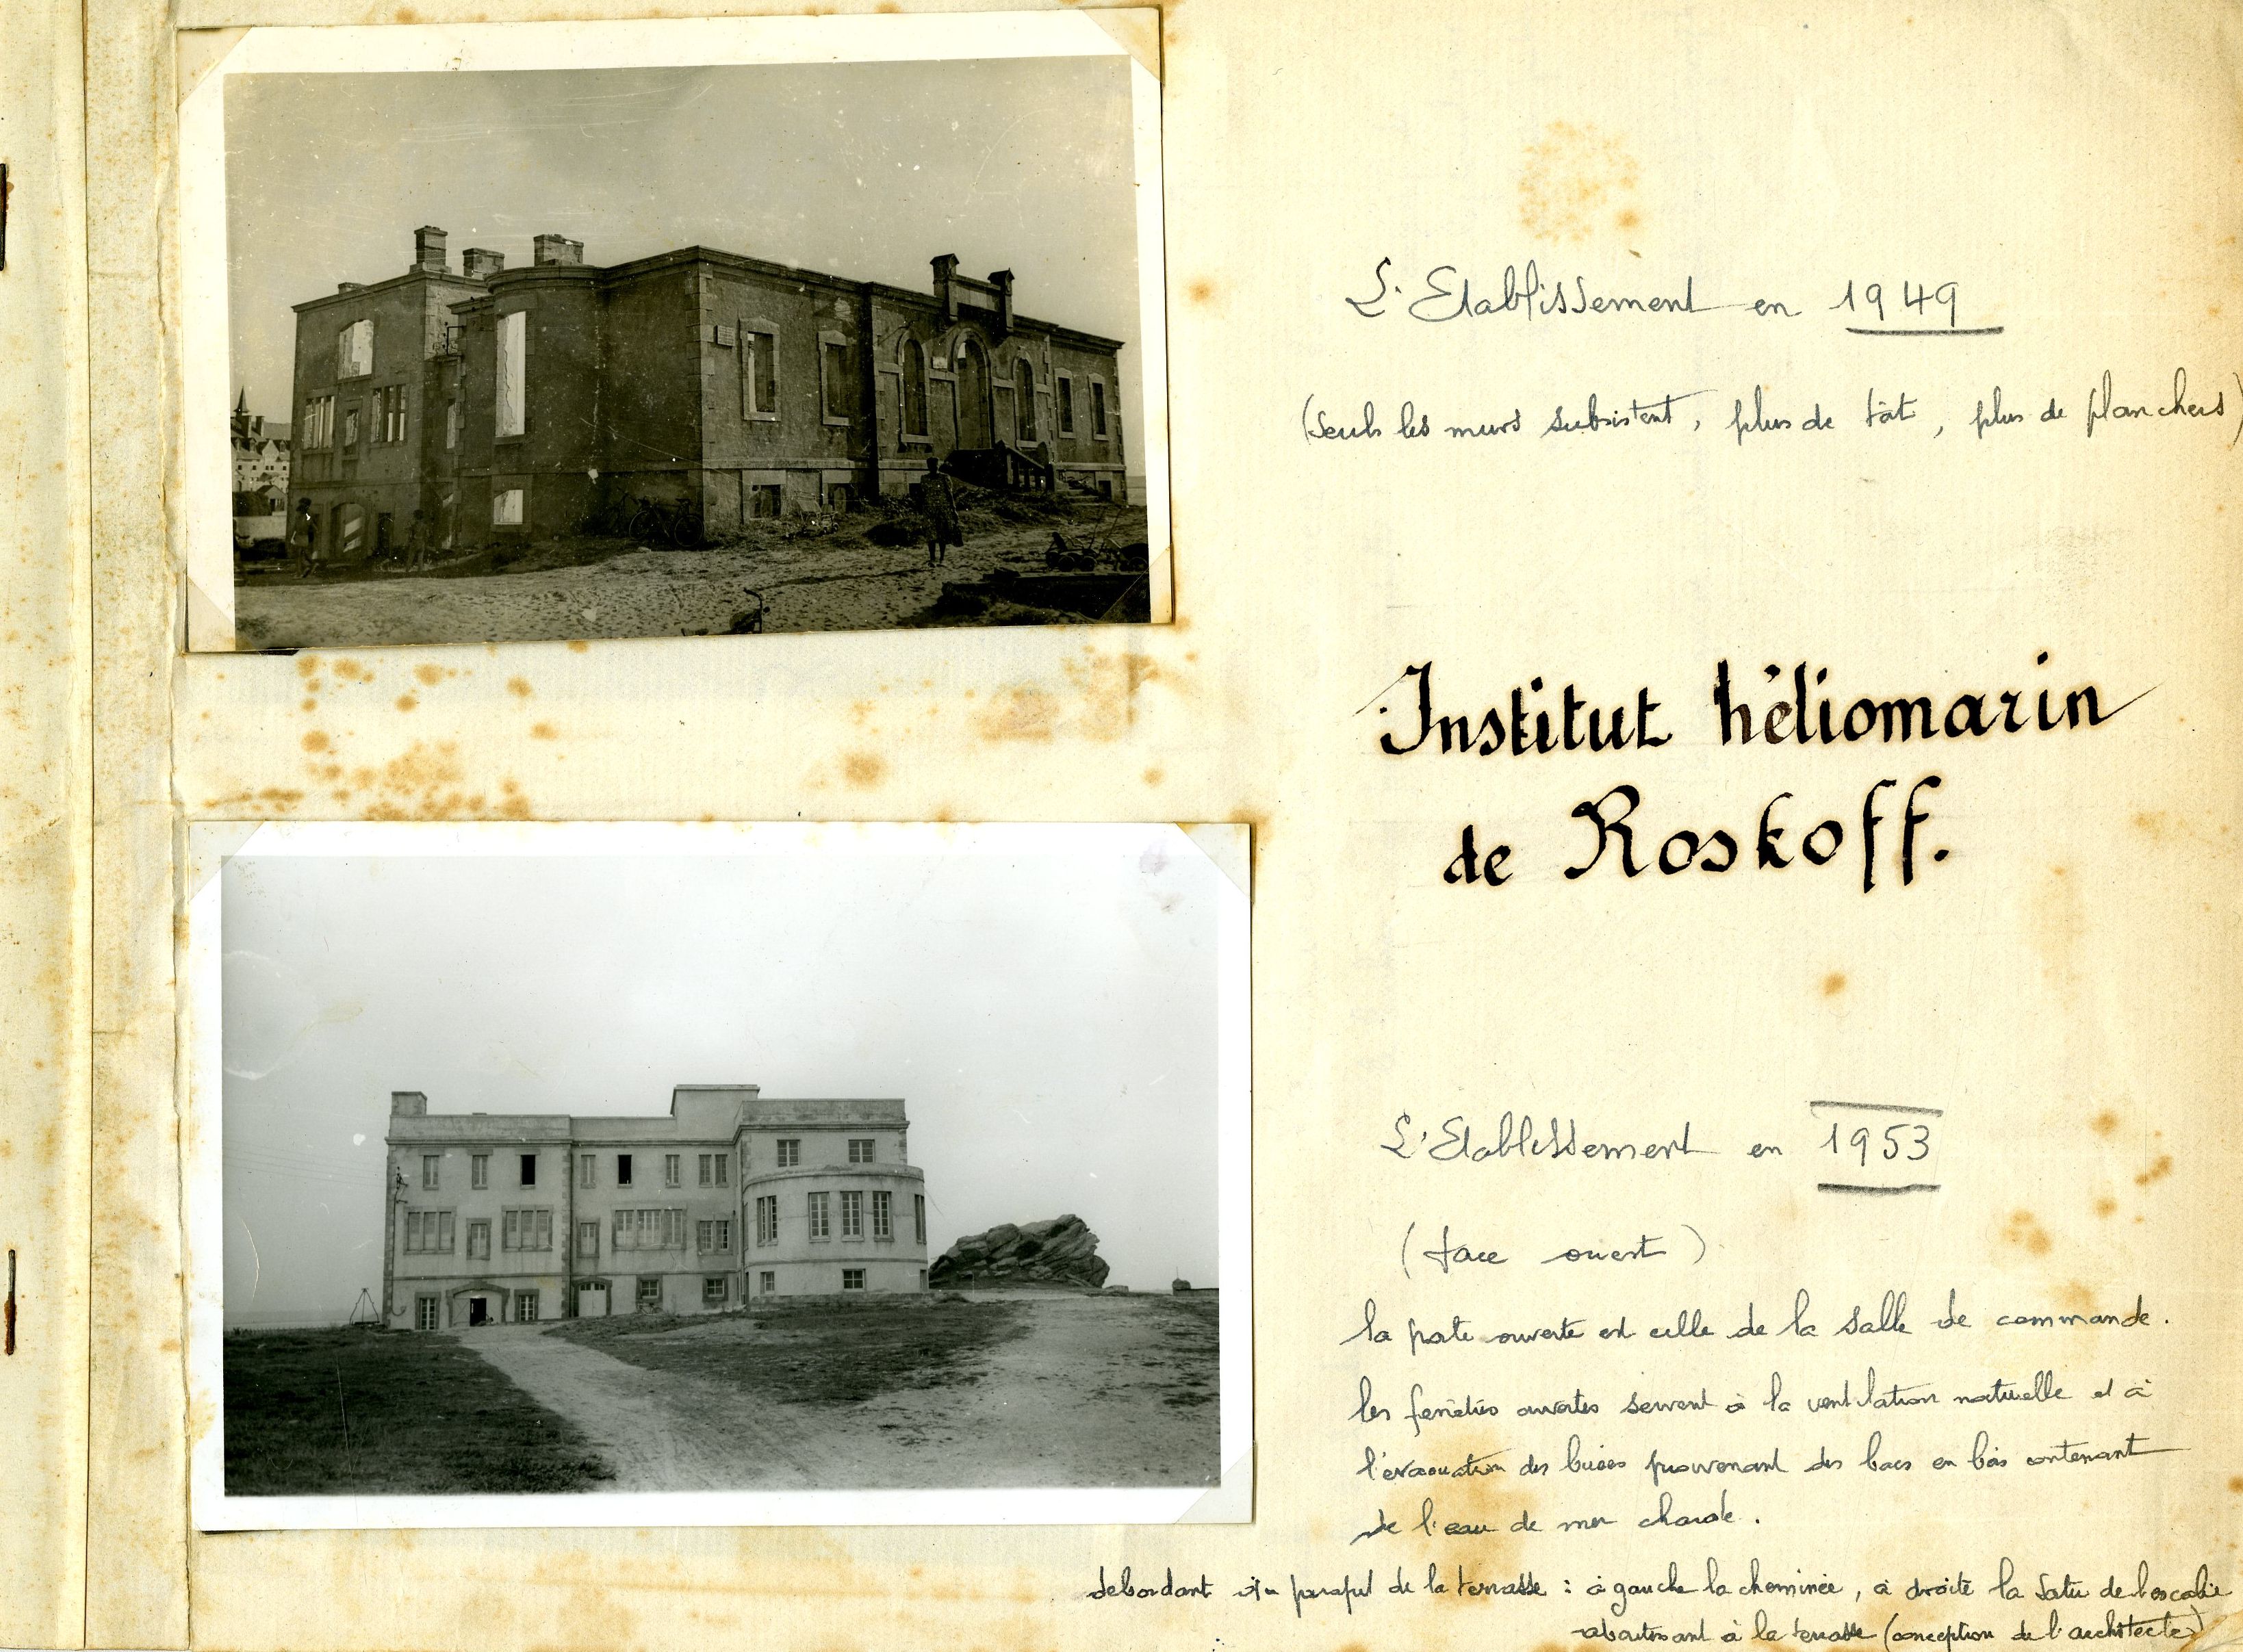 L'Etablissement en 1949
(seuls les murs subsistent, plus de toit, plus de planchers)
Institut héliomarin
de Roskoff.
L'Etablissement en 1953
(face ouest)
la porte ouverte est celle de la salle de commande.
les fenêtres ouvertes servent à la ventilation naturelle et à
l'évacuation des buées provenant des bacs en bois contenant
de l'eau de mer chaude.
débordant du parapet de la terrasse : à gauche la cheminée, à droite la de l'escalier
aboutissant à la terrasse (conception de l'architecte)